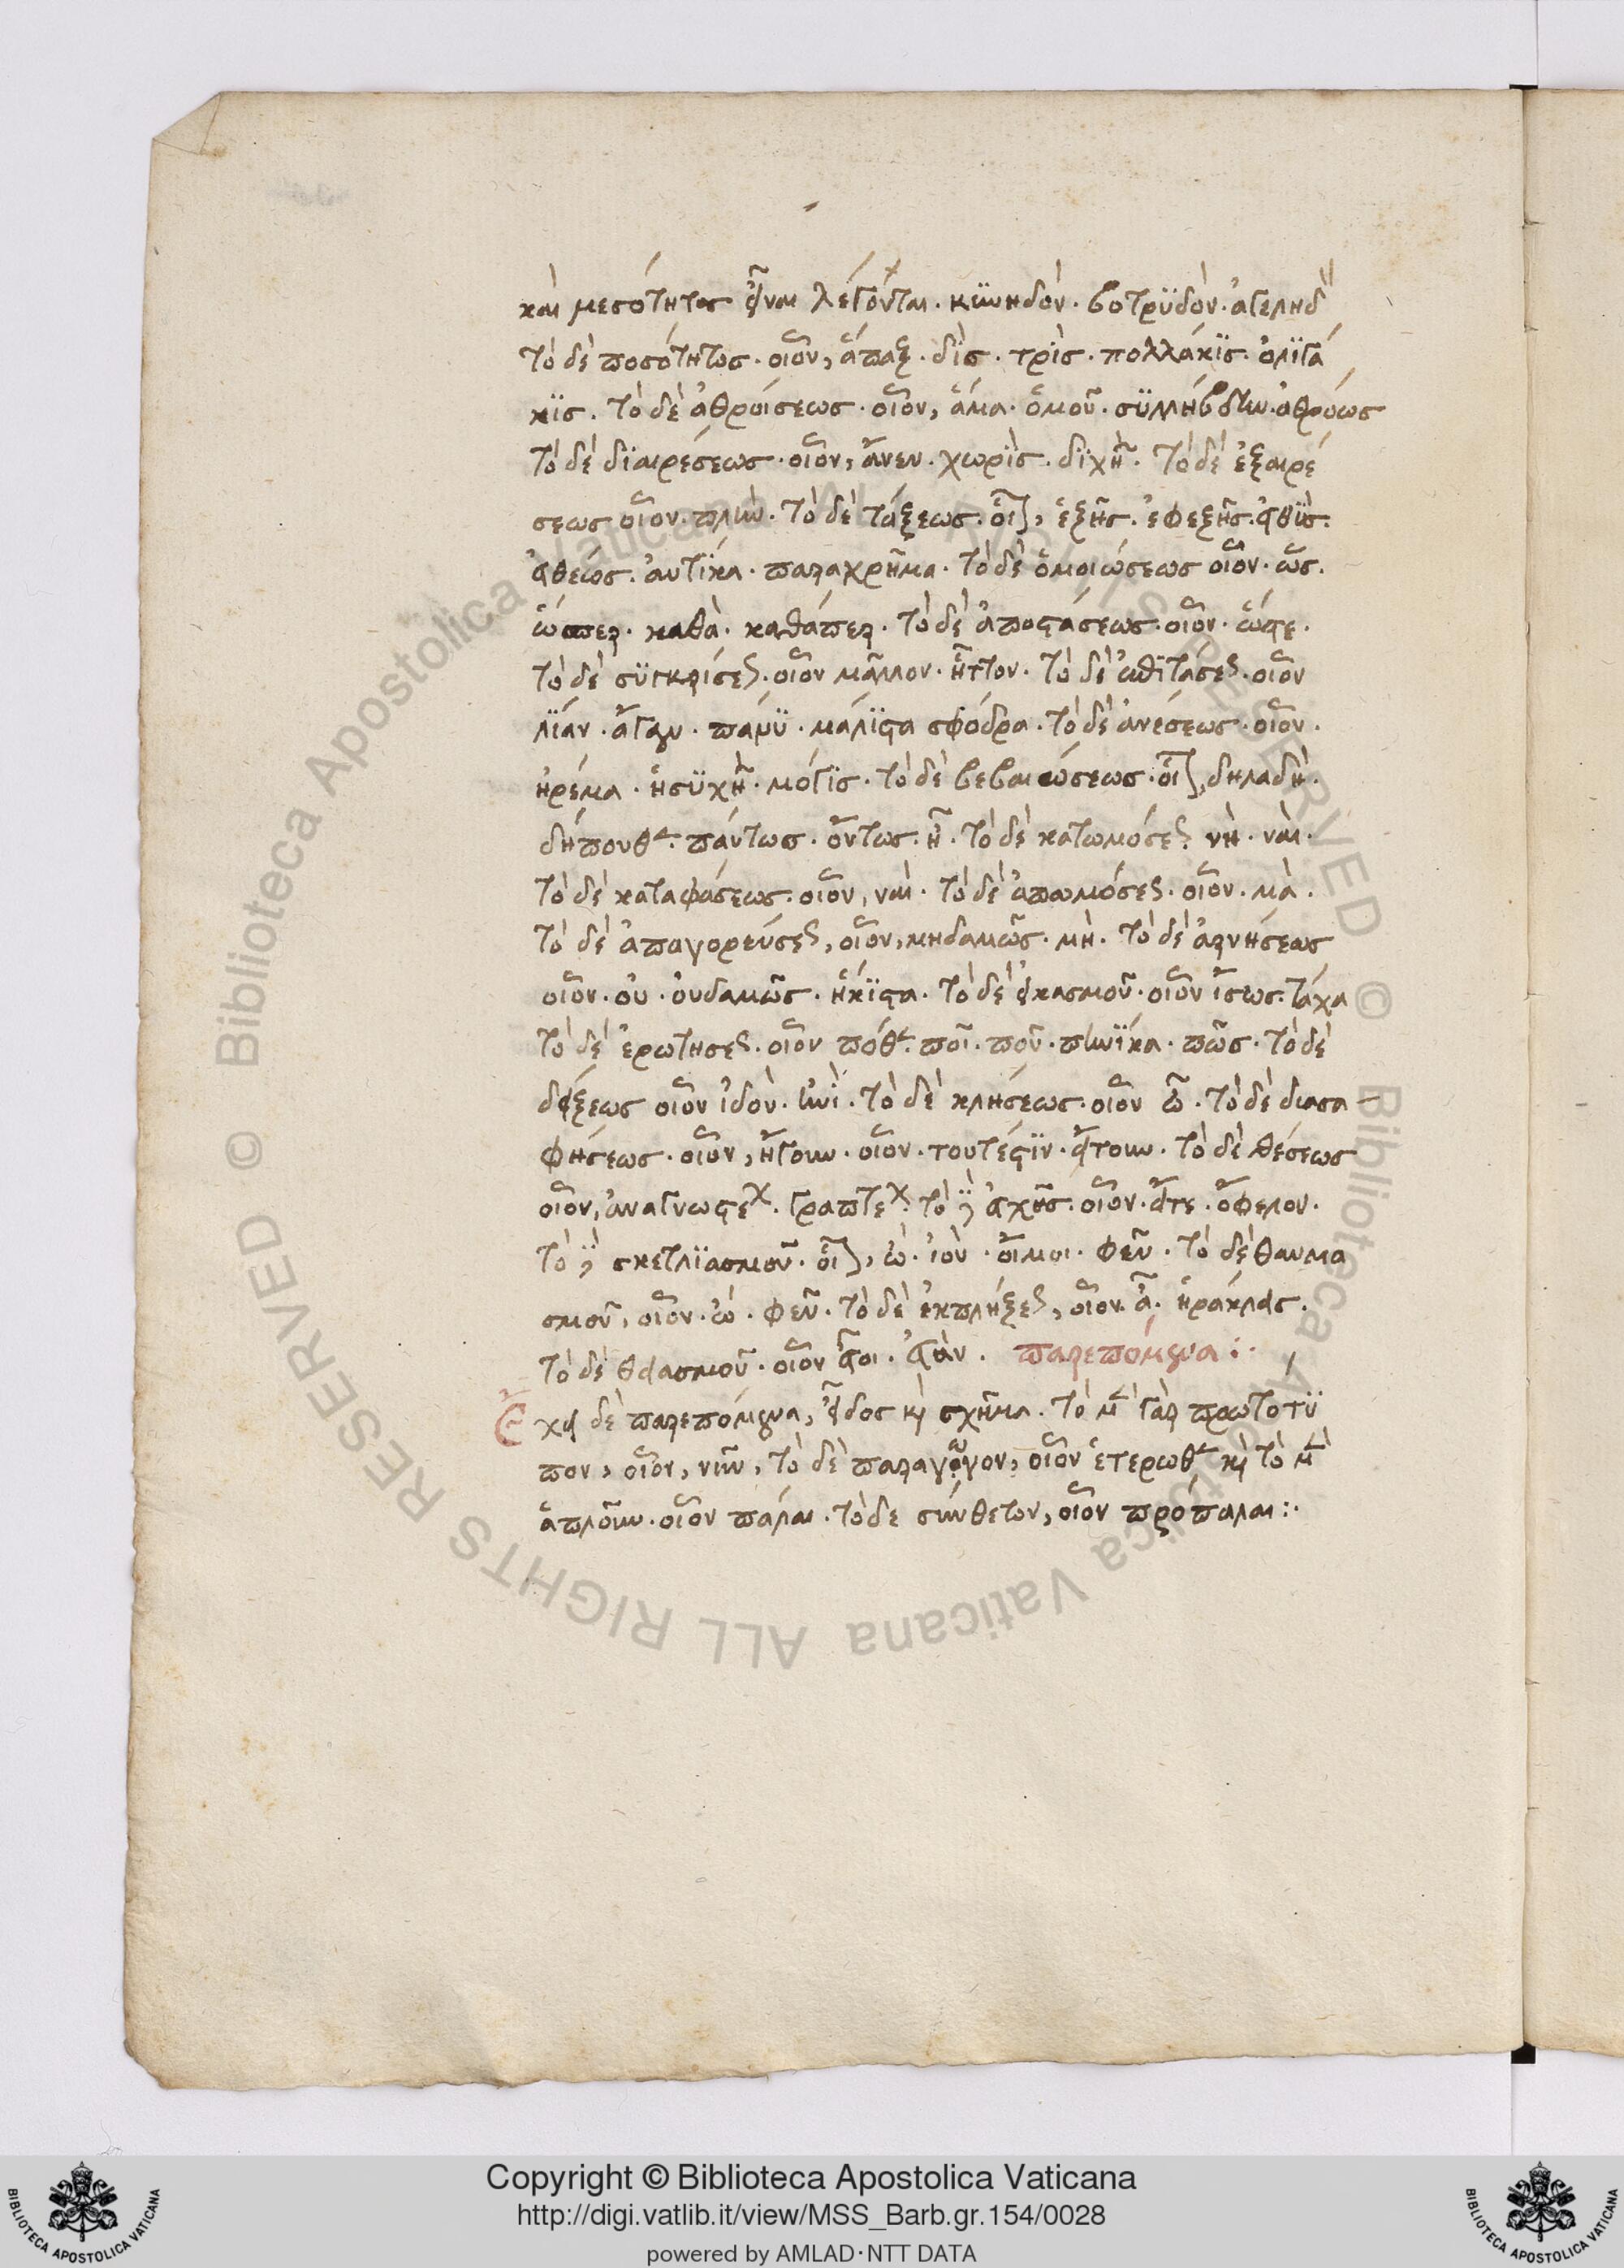 καὶ μεσότητος εἶναι λέγονται. κϋνηδόν. βοτρϋδὸν. ἀγεληδὸν
τὸ δὲ ποσότητος. οἷον, ἅπαξ. δὶς. τρὶς. πολλάκϊς. ὀλϊγά
κϊς. τὸ δὲ ἀθροίσεως. οἷον, ἅμα. ὁμοῦ. σϋλλήβδην. ἀθρόως
τὸ δὲ δϊαιρέσεως. οἷον, ἄνευ. χωρὶς. δϊχῆ. τὸ δὲ ἐξαιρέ
σεως οἷον. πλὴν. τὸ δὲ τάξεως. οἷον, ἑξῆς. ἐφεξῆς. εὐθῒς.
εὐθέως. αὐτίκα. παραχρῆμα. τὸ δὲ ὁμοιώσεως οἷον. ὡς.
ὥσπερ. καθὰ. καθάπερ. τὸ δὲ ἀποστάσεως. οἷον. ὥστε.
τὸ δὲ σϋγκρίσεως. οἷον μᾶλλον. ἧττον. τὸ δὲ ἐπϊτάσεως. οἷον
λϊάν. ἄγαν. πάνϋ. μάλϊστα σφόδρα. τὸ δὲ ἀνέσεως. οἷον.
ἠρέμα. ἡσϋχῆ. μόγϊς. τὸ δὲ βεβαιώσεως. οἷον, δηλαδὴ.
δήπουθεν. πάντως. ὄντως. ἦ. τὸ δὲ κατωμόσεως. νὴ. ναὶ.
τὸ δὲ καταφάσεως. οἷον, ναὶ. τὸ δὲ ἀπωμόσεως. οἷον. μὰ.
τὸ δὲ ἀπαγορεύσεως, οἷον, μηδαμῶς. μὴ. τὸ δὲ ἀρνήσεως
οἷον. οὐ. οὐδαμῶς. ἥκϊστα. τὸ δὲ εἰκασμοῦ. οἷον ἴσως. τάχα
τὸ δὲ ἐρωτήσεως. οἷον πόθεν. ποῖ. ποῦ. πηνϊκα. πῶς. τὸ δὲ
δείξεως οἷον ἰδοὺ. ἠνὶ. τὸ δὲ κλήσεως. οἷον ὦ. τὸ δὲ διασα-
φήσεως. οἷον, ἤγουν. οἷον. τουτέστϊν. εἴτουν. τὸ δὲ θέσεως
οἷον, ἀναγνωστέον. γραπτέον. τὸ δὲ εὐχῆς. οἷον. εἴτε. ὄφελον.
τὸ δὲ σχετλϊασμοῦ. οἷον, ὢ. ἰοὺ. οἴμοι. φεῦ. τὸ δὲ θαυμα
σμοῦ, οἷον. ὢ. φεῦ. τὸ δὲ ἐκπλήξεως, οἷον. ἆ. ἡράκλεις.
τὸ δὲ θειασμοῦ. οἷον εὖοι. εὐὰν. παρεπόμενα :.
Ἔχει δὲ παρεπόμενα, εἶδος καὶ σχῆμα. τὸ μὲν γὰρ πρωτοτϋ
πον, οἷον, νῦν, τὸ δὲ παράγωγον, οἷον ἑτέρωθεν καὶ τὸ μὲν
ἁπλοῦν. οἷον πάλαι. τὸ δὲ σύνθετον, οἷον πρόπαλαι :.
© Biblioteca Apostolica Vaticana ALL RIGHTS RESERVED
Copyright © Biblioteca Apostolica Vaticana
http://digi.vatlib.it/view/MSS_Barb.gr.154/0028
powered by AMLAD·NTT DATA
BIBLIOTECA APOSTOLICA VATICANA
BIBLIOTECA APOSTOLICA VATICANA